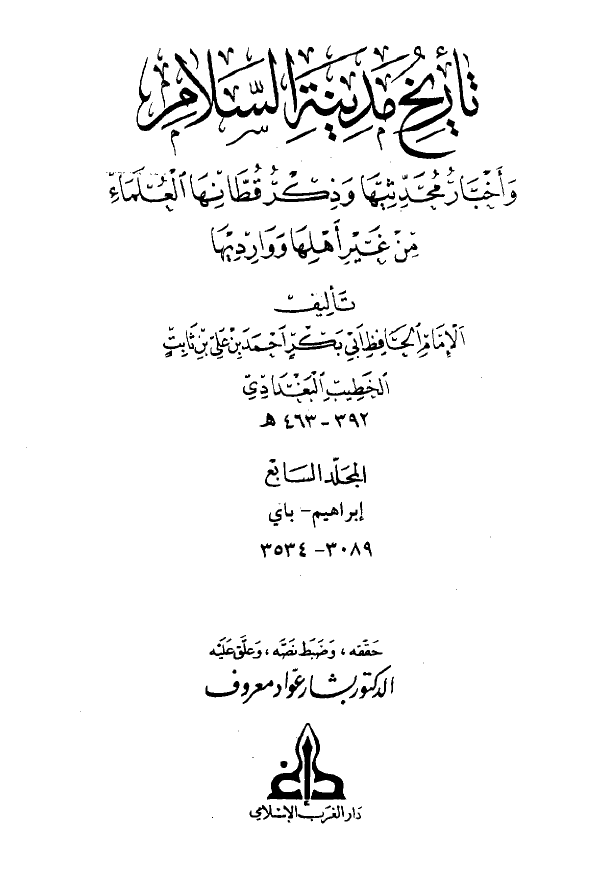 تأريخ مدينة السلام
وَأَخْبَارُ مُحَدِّثِيهَا وَذِكْرُ قُطَّانِهَا العُلَمَاءِ
مِنْ غَيْرِ أَهْلِهَا وَوَارِدِيهَا
تَأليف
الإمَامِ الحَافِظِ أَبِي بَكْرٍ أَحْمَدَ بْنِ عَلِيِّ بْنِ ثَابِتٍ
الخَطِيبِ البَغْدَادِيِّ
٣٩٢ - ٤٦٣ هـ
المجلّد السَابع
إبراهيم - باي
٣٠٨٩ - ٣٥٣٤
حَقّقه، وَضَبَط نَصَّه، وَعَلّق عَليْه
الدكتور بشار عوّاد معروف
دار الغرب الإسلامي